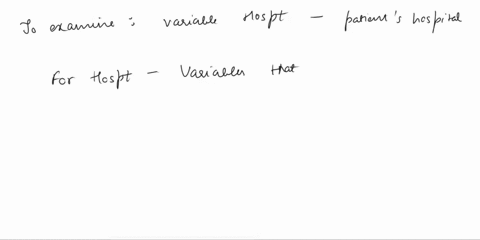 To examine : variable Hospt - patient's hospital
For Hospt - Variables that